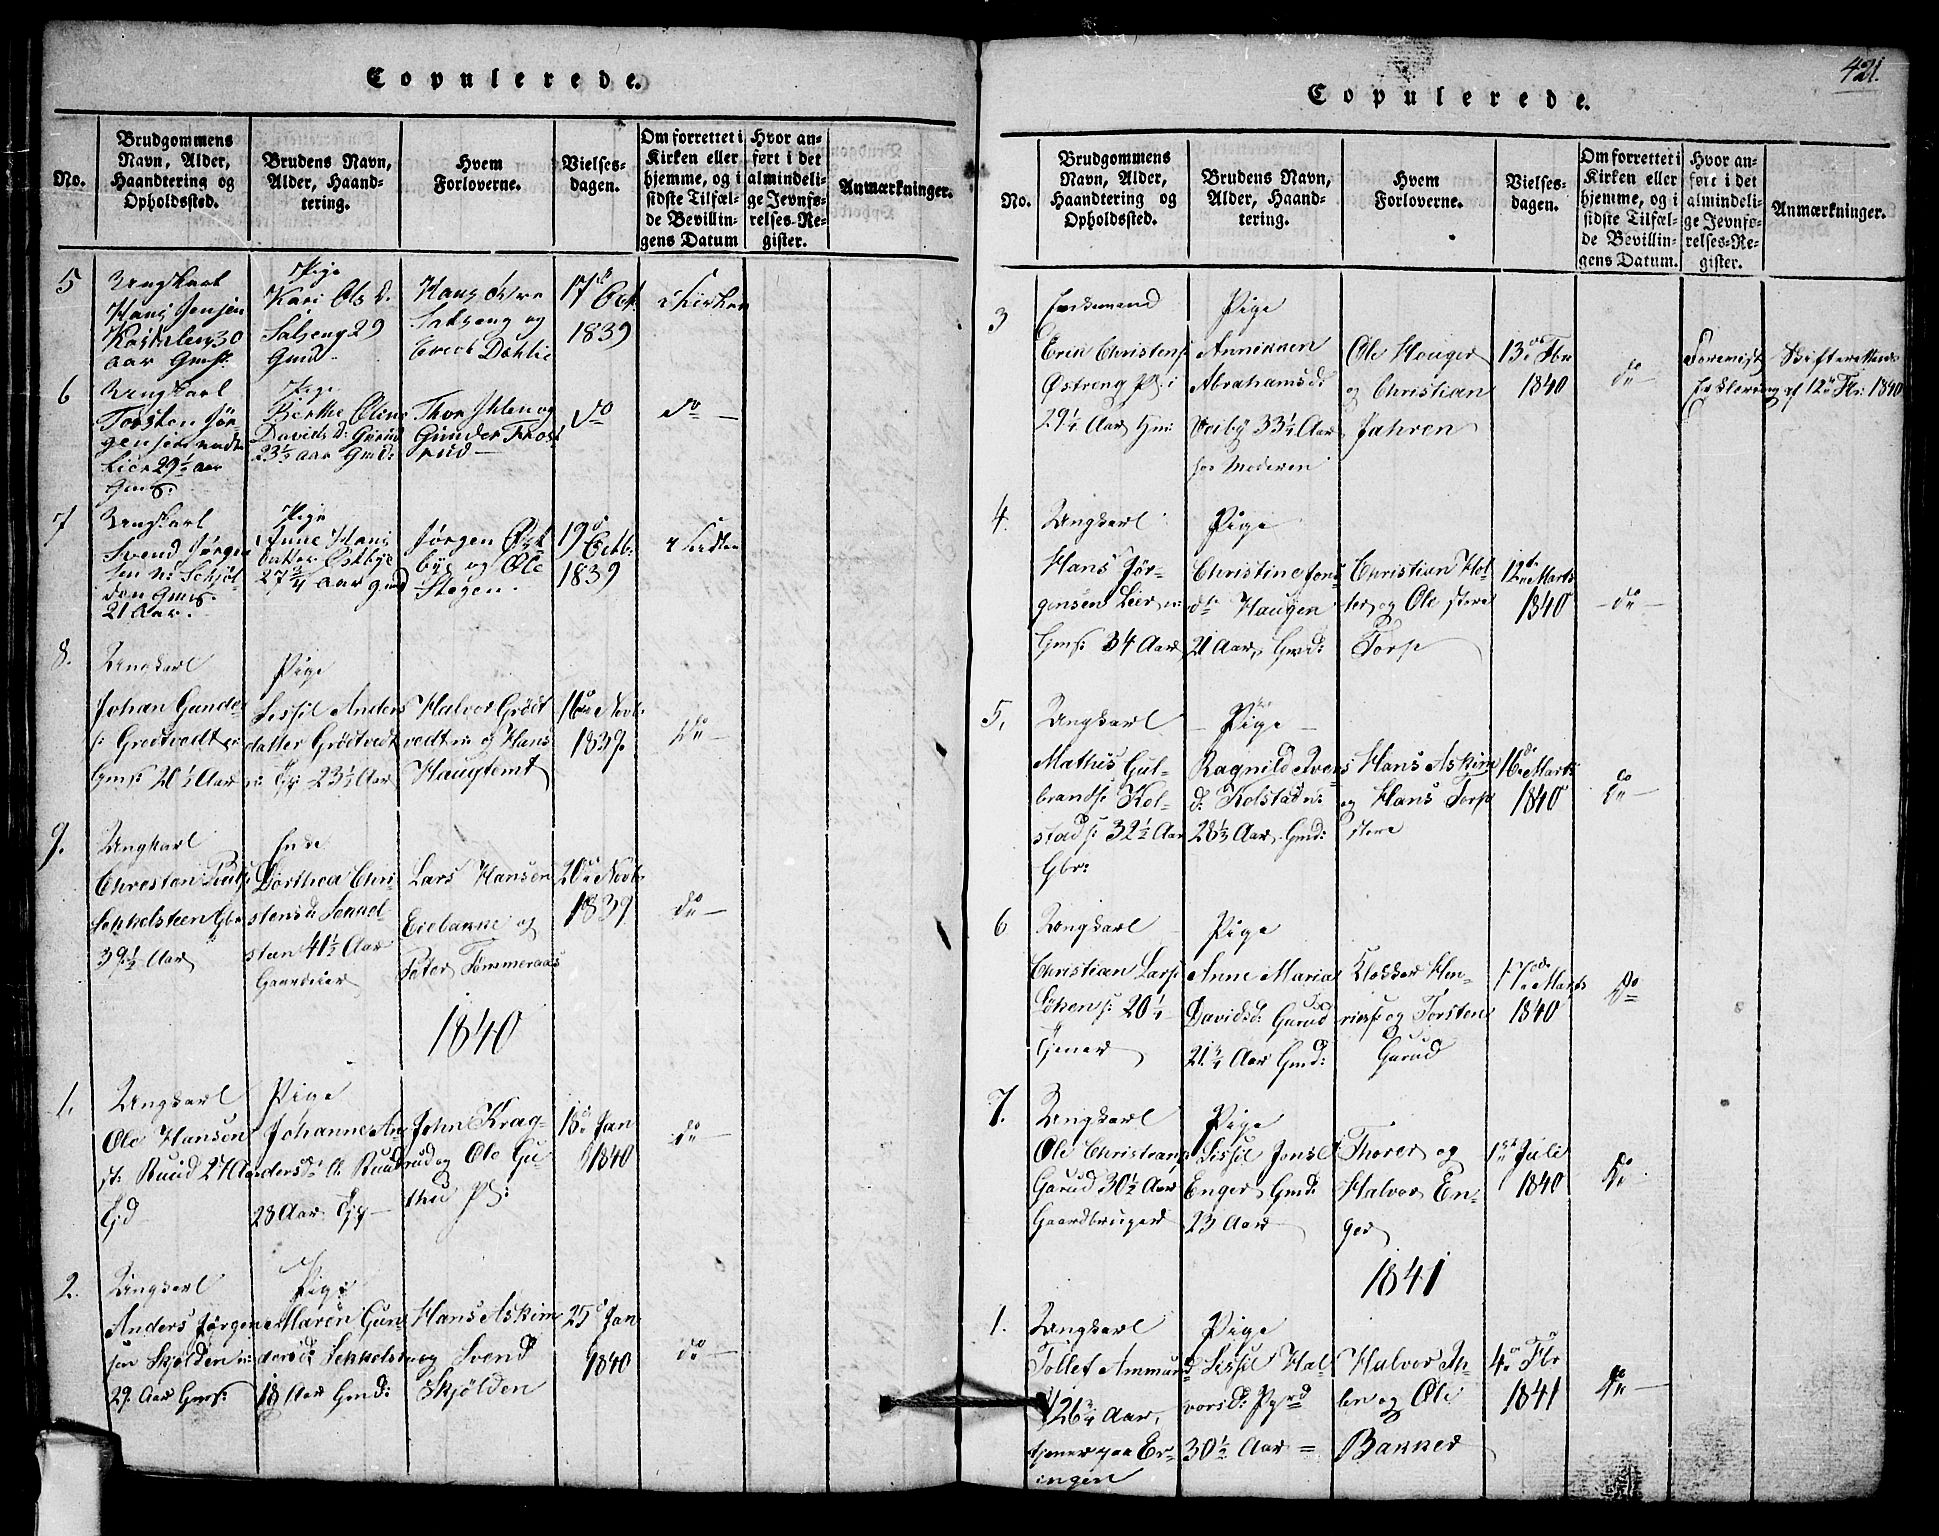 Copulerede.
No.
Brudgommens
Navn, Alder,
Haandtering og
Opholdssted.
Brudens Navn,
Alder, Haand-
tering.
Hvem
Forloverne.
Vielses-
dagen.
Om forrettet i
Kirken eller
hjemme, og i
sidste Tilfæl-
de Bevillin-
gens Datum
Hvor an-
ført i det
almindeli-
ge Jevnfø-
relses-Re-
gister.
Anmærkninger.
5
Ungkarl
Hans Jensen
30
aar Gmsk.
Pige
Kari Ols D.
Salseng 29
Gmd.
Hans østre
Salseng og
Dæhlie
17de Oct.
1839
i Kirken
6
Ungkarl
Torsten Jør-
gensen
Lier 29½ aar
Gms:
Pige
Berthe Oline
Davids D: Garud
23½ aar Gmd:
Thor Ihlen og
Gunder Fros
rud
do
do
7
Ungkarl
Svend Jørgen
sen n: Skjøl
den Gms.
21 Aar.
Pige
Anne Hans
datter Østbye
27¾ aar Gmd
Jørgen Øst
bye og Ole
Stegen.
19de Octb:
1839
i Kirken
8.
Ungkarl
Johan Gunder
s: Grødtvedt n:
Gms: 20½ Aar
Pige
Sissil Anders
datter Grødtvedt
n: Gj 23½ Aar
Halvor Grødt
vedt n: og Hans
Haugtomt
16de Novb:
1839.
do
9.
Ungkarl
Christen
Sekkelsteen Gbr
39½ Aar
Enke
Dorthea Chri-
stensd: Sekkel-
steen 41½ Aar
Gaardeier
Lars Hansen
Eiebakke og
Peter Tømmeraas
20de Novb:
1839
do
1840
1.
Ungkarl
Ole Hansen
st: Ruud 27 Aar
Gjd
Pige
Johanne An-
dersd: n. Ruud
28 Aar Gjg
John Krag-
rud og Ole Gu-
thu pl:
18de Jan
1840
do
2.
Ungkarl
Anders Jørgen-
sen Skjølden n:
29. Aar Gms:
Pige
Maren Gun-
dersd: Sekkelst
18 Aar Gmd:
Hans Askim
og Svend
Skjølden
25de Jan
1840
do
421.
Copulerede.
No.
Brudgommens
Navn, Alder,
Haandtering og
Opholdssted.
Brudens Navn,
Alder, Haand-
tering.
Hvem
Forloverne.
Vielses-
dagen.
Om forrettet i
Kirken eller
hjemme, og i
sidste Tilfæl-
de Bevillin-
gens Datum.
Hvor an-
ført i det
almindeli-
ge Jevnfø-
relses-Re-
gister.
Anmærkninger.
3
Enkemand
Erik Christens:
Østreng pl: i
29¼ Aar Hm:
Pige
Annikken
Abrahamsd:
33¼ Aar
hos Moderen
Ole Houger
og Christian
Jahren
13de Fbr
1840
do
Foreviist Skifterettens
Erklæring af 12te Fbr: 1840
4.
Ungkarl
Hans Jør-
gensen Lier n:
Gms: 34 Aar
Pige
Christine Jens
dtr Haugen
21 Aar, Gmd:
Christian Hol
ter og Ole store
Torp
12te Marts
1840
do
5.
Ungkarl
Mathis Gul-
brands: Kol-
stad s: 32½ Aar
Gbr:
Pige
Ragnild Ivers
d: Kolstad n:
28½ Aar. Gmd:
Hans Askim
og Hans Torp
store
16de Marts
1840
do
6
Ungkarl
Christian Lars:
20¼
tjener
Pige
Anne Maria
Davidsd: Garud
21¾ Aar Gmd:
Klokker Hen-
riks: og Torsten
Garud
17de Marts
1840
do
7.
Ungkarl
Ole Christians
Garud 30½ Aar
Gaardbruger
Pige
Sissil Jensd
Enger Gmd:
23 Aar
Thorer og
Halvor En-
ger
1ste Juli
1840
do
1841
1.
Ungkarl
Tollef Ammun
26¾ Aar,
tjener paa Er-
ingen
Pige
Sissil Hal-
vorsd:
30½ Aar
Halvor
og Ole
Bakker
4de Fbr
1841
do